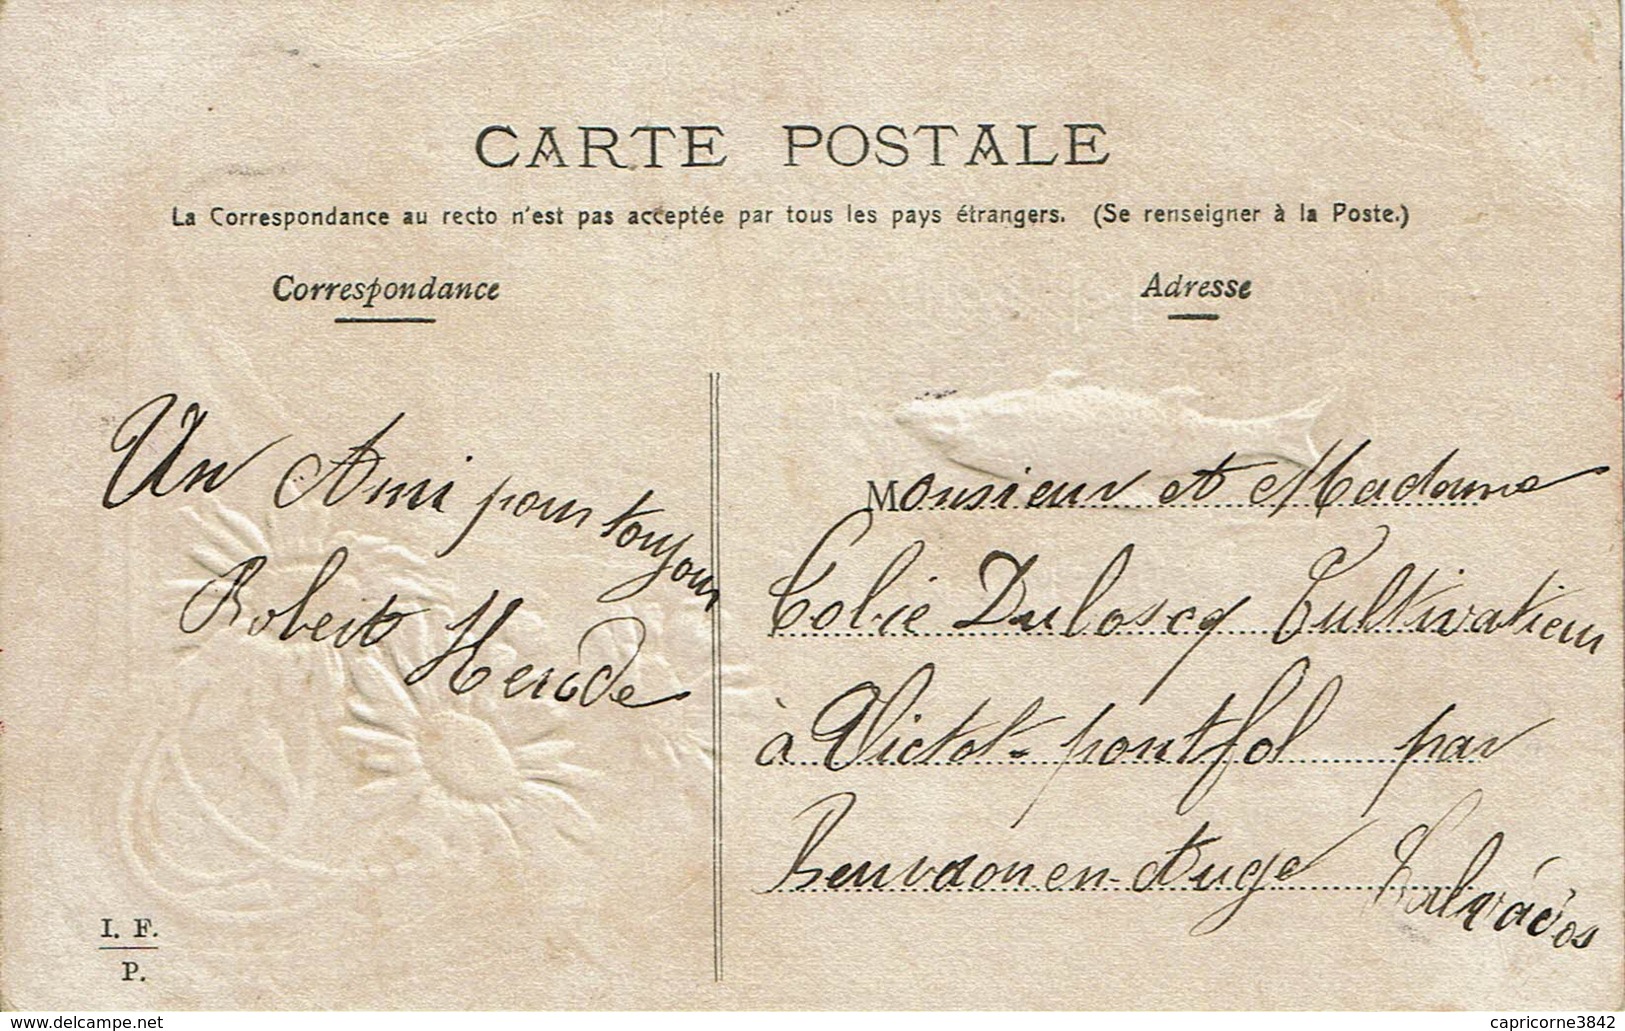 CARTE POSTALE
La Correspondance au recto n'est pas acceptée par tous les pays étrangers. (Se renseigner à la Poste.)
Correspondance
Adresse
Un Ami pour toujour
Robert
Monsieur et Madame
Cultivatieur
à Victot-pontfol par
Beuvronen-Auge Calvados
I. F.
P.
www.delcampe.net
capricorne3842